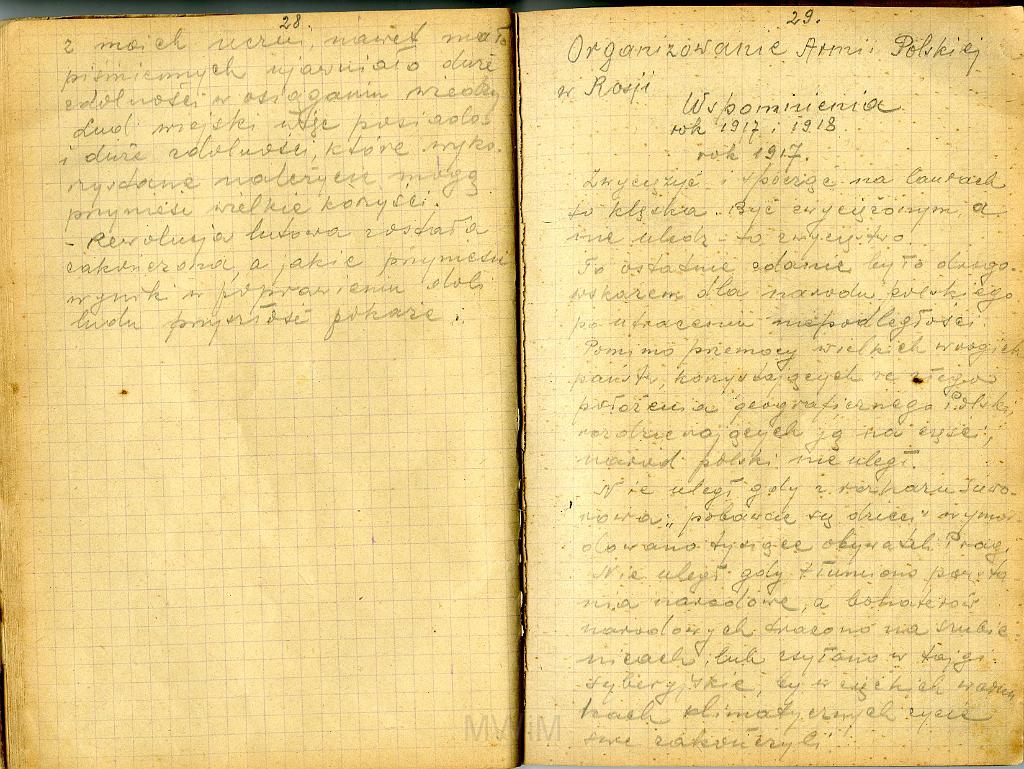 28.
z moich uczni, nawet mało
piśmiennych ujawniało duże
zdolności w osiąganiu wiedzy
Lud wiejski więc posiada
i duże zdolności, które wyko-
rzystane należycie mogą
przynieść wielkie korzyści.
- Rewolucja lutowa została
zakończona, a jakie przyniesie
wynik w poprawieniu doli
ludu przyszłość pokaże.
29.
Organizowanie Armii Polskiej
w Rosji
Wspomnienia
rok 1917 i 1918.
rok 1917.
Zwyciężyć i spocząć na laurach
to klęska. Być zwyciężonym, a
nie uledz - to zwycięstwo.
To ostatnie zdanie było drogo-
wskazem dla narodu polskiego
po utraceniu niepodległości.
Pomimo przemocy wielkich wrogich
państw, korzystających ze złego
położenia geograficznego Polski
rozdzierających ją na części,
naród polski nie uległ.
Nie uległ gdy z rozkazu Suwo-
rowa: "pobawcie się dzieci" wymor
dowano tysiące obywateli Pragi.
Nie uległ gdy tłumiono powsta
nia narodowe, a bohaterów
narodowych tracono na szubie
nicach, lub zsyłano w tajgi
syberyjskie, by w ciężkich warun
kach klimatycznych życie
swe zakończyli.
MWM